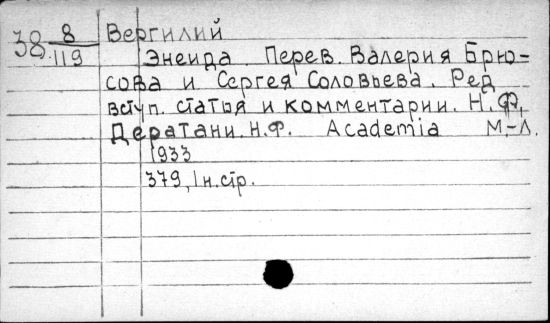 38 8/119 Вергилий
Энеида. Перев. Валерия Брю-
сова и Сергея Соловьева. Ред
вступ. статья и комментарии. Н. Ф.
Дератани. Н.Ф. Academia М.-Л.
1933
379, 1 н. стр.